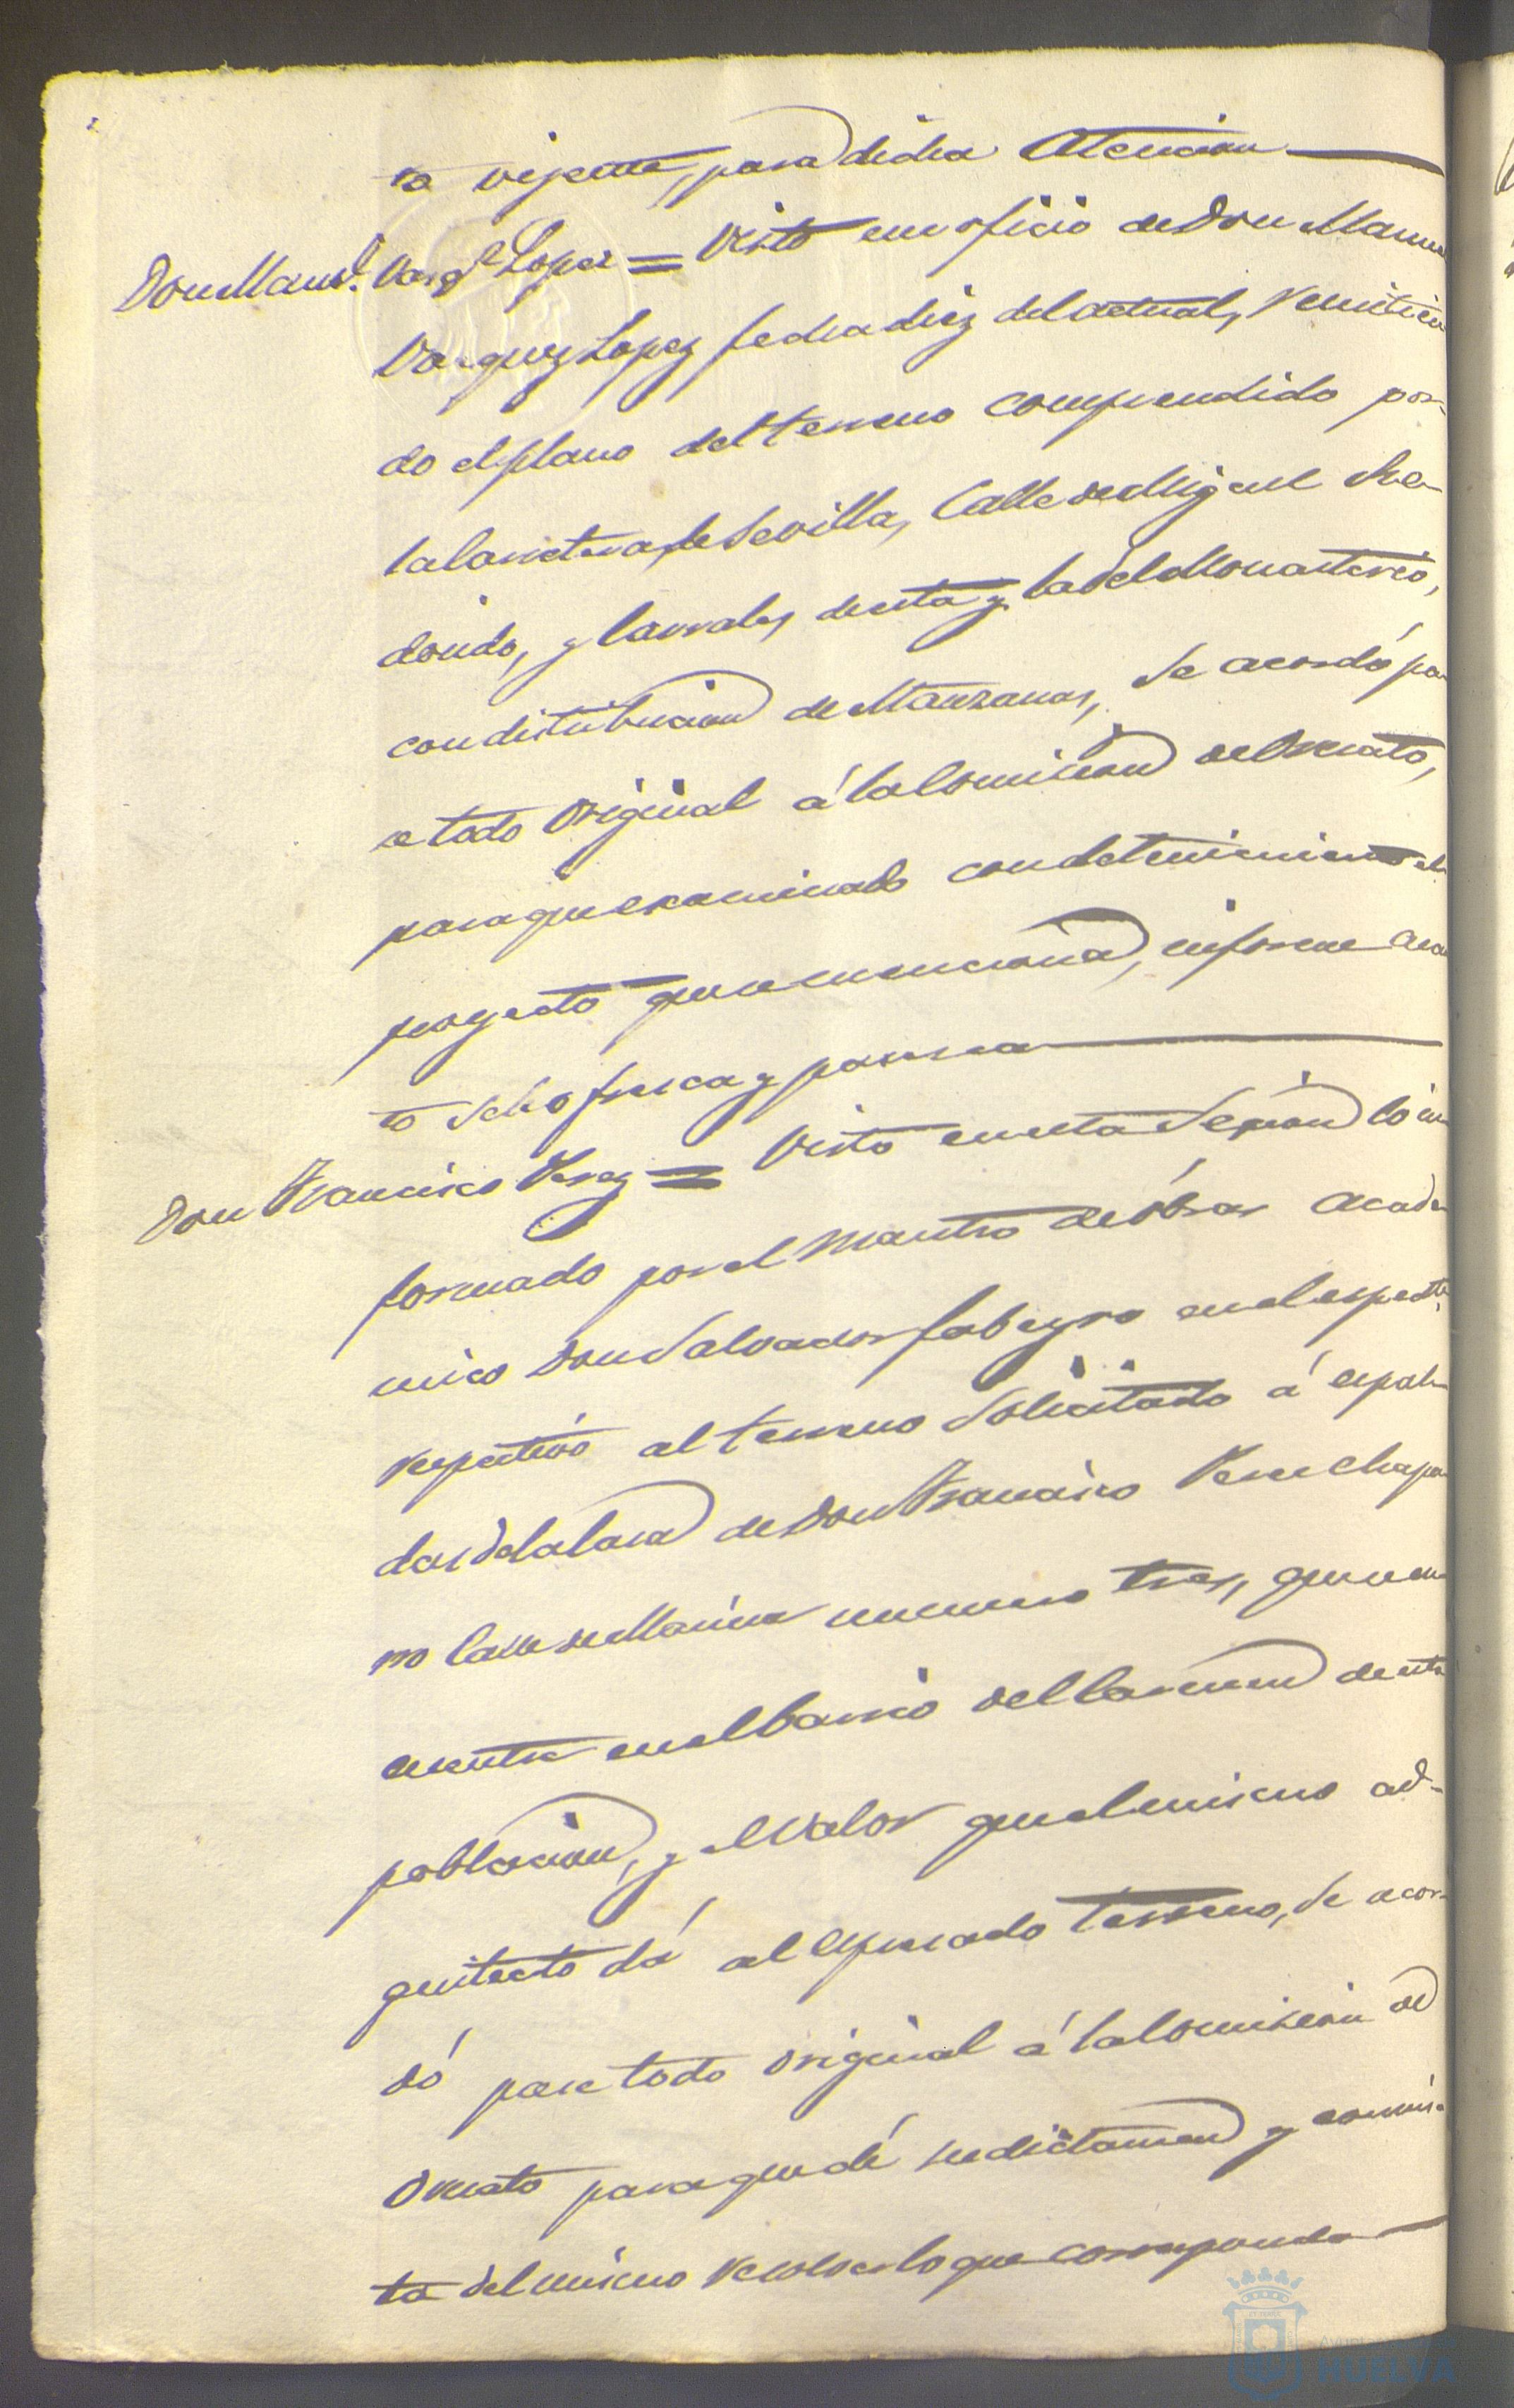 to vigente, para dicha Atencion
Don Manl. Vazqz. Lopez = Visto un oficio de Don Manuel
Vazquez Lopez fecha diez del actual, remitien
do el plano del terreno comprendido por
la Carretera de Sevilla, Calle de Miguel Re-
dondo, y Corrales de esta y la del Monasterio,
con distribucion de Manzanas, se acordó pa
se todo original á la Comision de Ornato,
para que examinado con detenimiento el
proyecto que se menciona, informe cuan
to se le ofrezca y parezca
Don Francisco Perez = Visto en esta Sesion lo in
formado por el Maestro de óbras Acade
mico Don Salvador en el espedte.
respectivo al terreno Solicitado á espal
das de la Casa de Don Francisco Chapa
rro Calle de Marina numero tres, que se en
cuentra en el barrio del Carmen de esta
poblacion, y el valor que el mismo ar-
quitecto dá al espresado terreno, se acor-
dó pase todo original á la Comision de
Ornato para que dé su dictamen y en vis-
ta del mismo resolver lo que corresponda
HUELVA